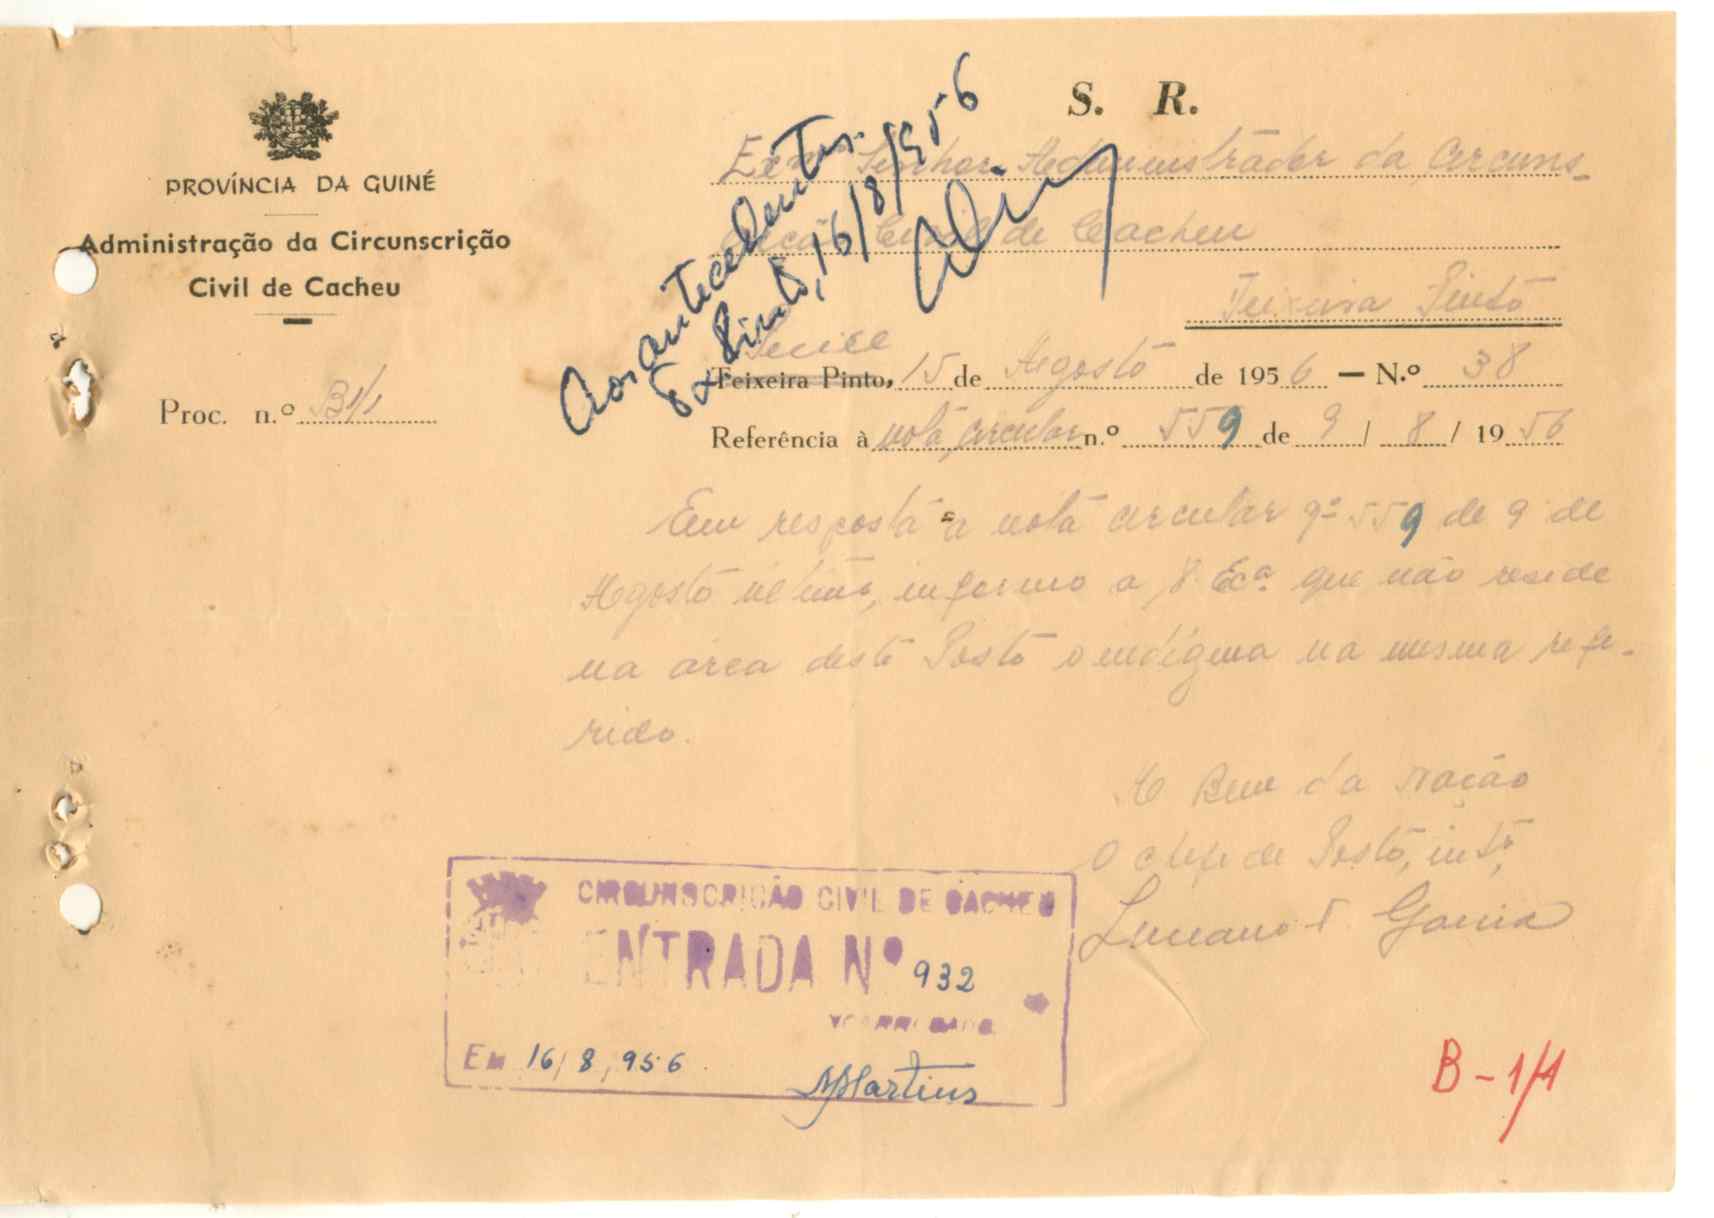 S. R.
PROVÍNCIA DA GUINÉ
Administração da Circunscrição
Civil de Cacheu
Proc. n.º B1/1
Exmo. Senhor Administrador da Circuns-
crição Civil de Cacheu
Teixeira Pinto
Aos antecedentes.
Tx. Pinto, 16/8/956
Teixeira Pinto, 15 de Agosto de 1956 — N.º 38
Referência à nota circular n.º 559 de 9 / 8 / 1956
Em resposta a nota circular nº 559 de 9 de
Agosto último, informo a V. Ecª que não reside
na área deste Posto o indígena na mesma refe-
rido.
A Bem da Nação
O chefe de Posto, intº,
Luciano T. Garcia
CIRCUNSCRIÇÃO CIVIL DE CACHEU
ENTRADA Nº 932
O ENCARREGADO
Em 16/8/956.
Martins
B-1/1